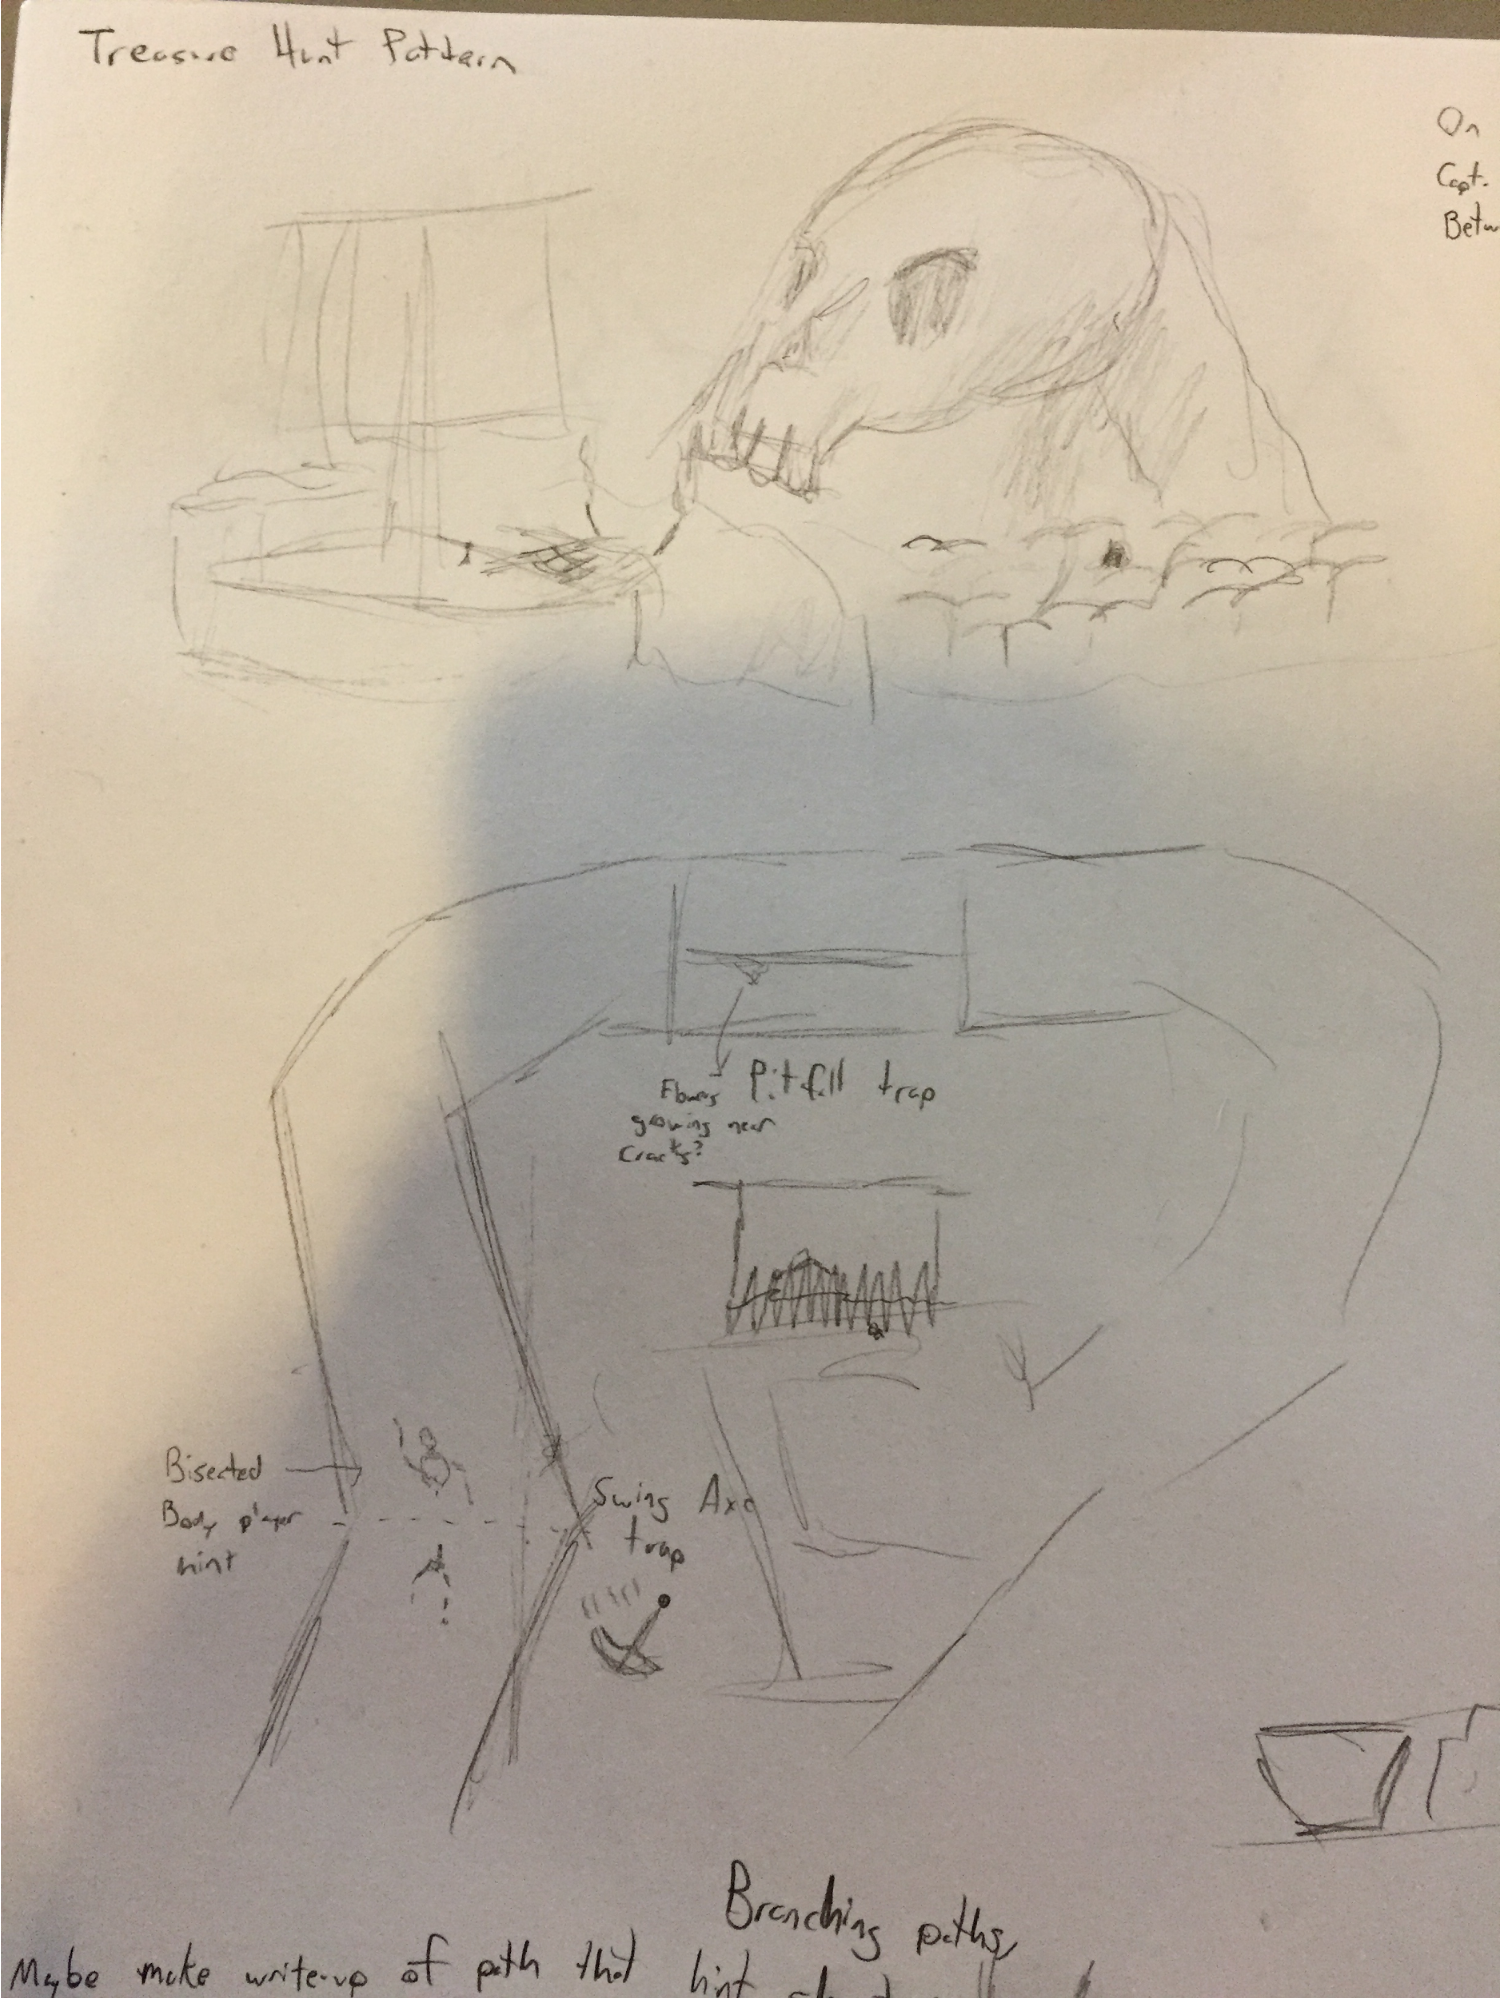 Treasure Hunt Pattern
On
Capt.
Betw
Pitfall trap
Flowers
growing near
cracks?
Bisected
Body player
hint
Swing Axe
trap
Branching paths
Maybe make write-up of path that hint